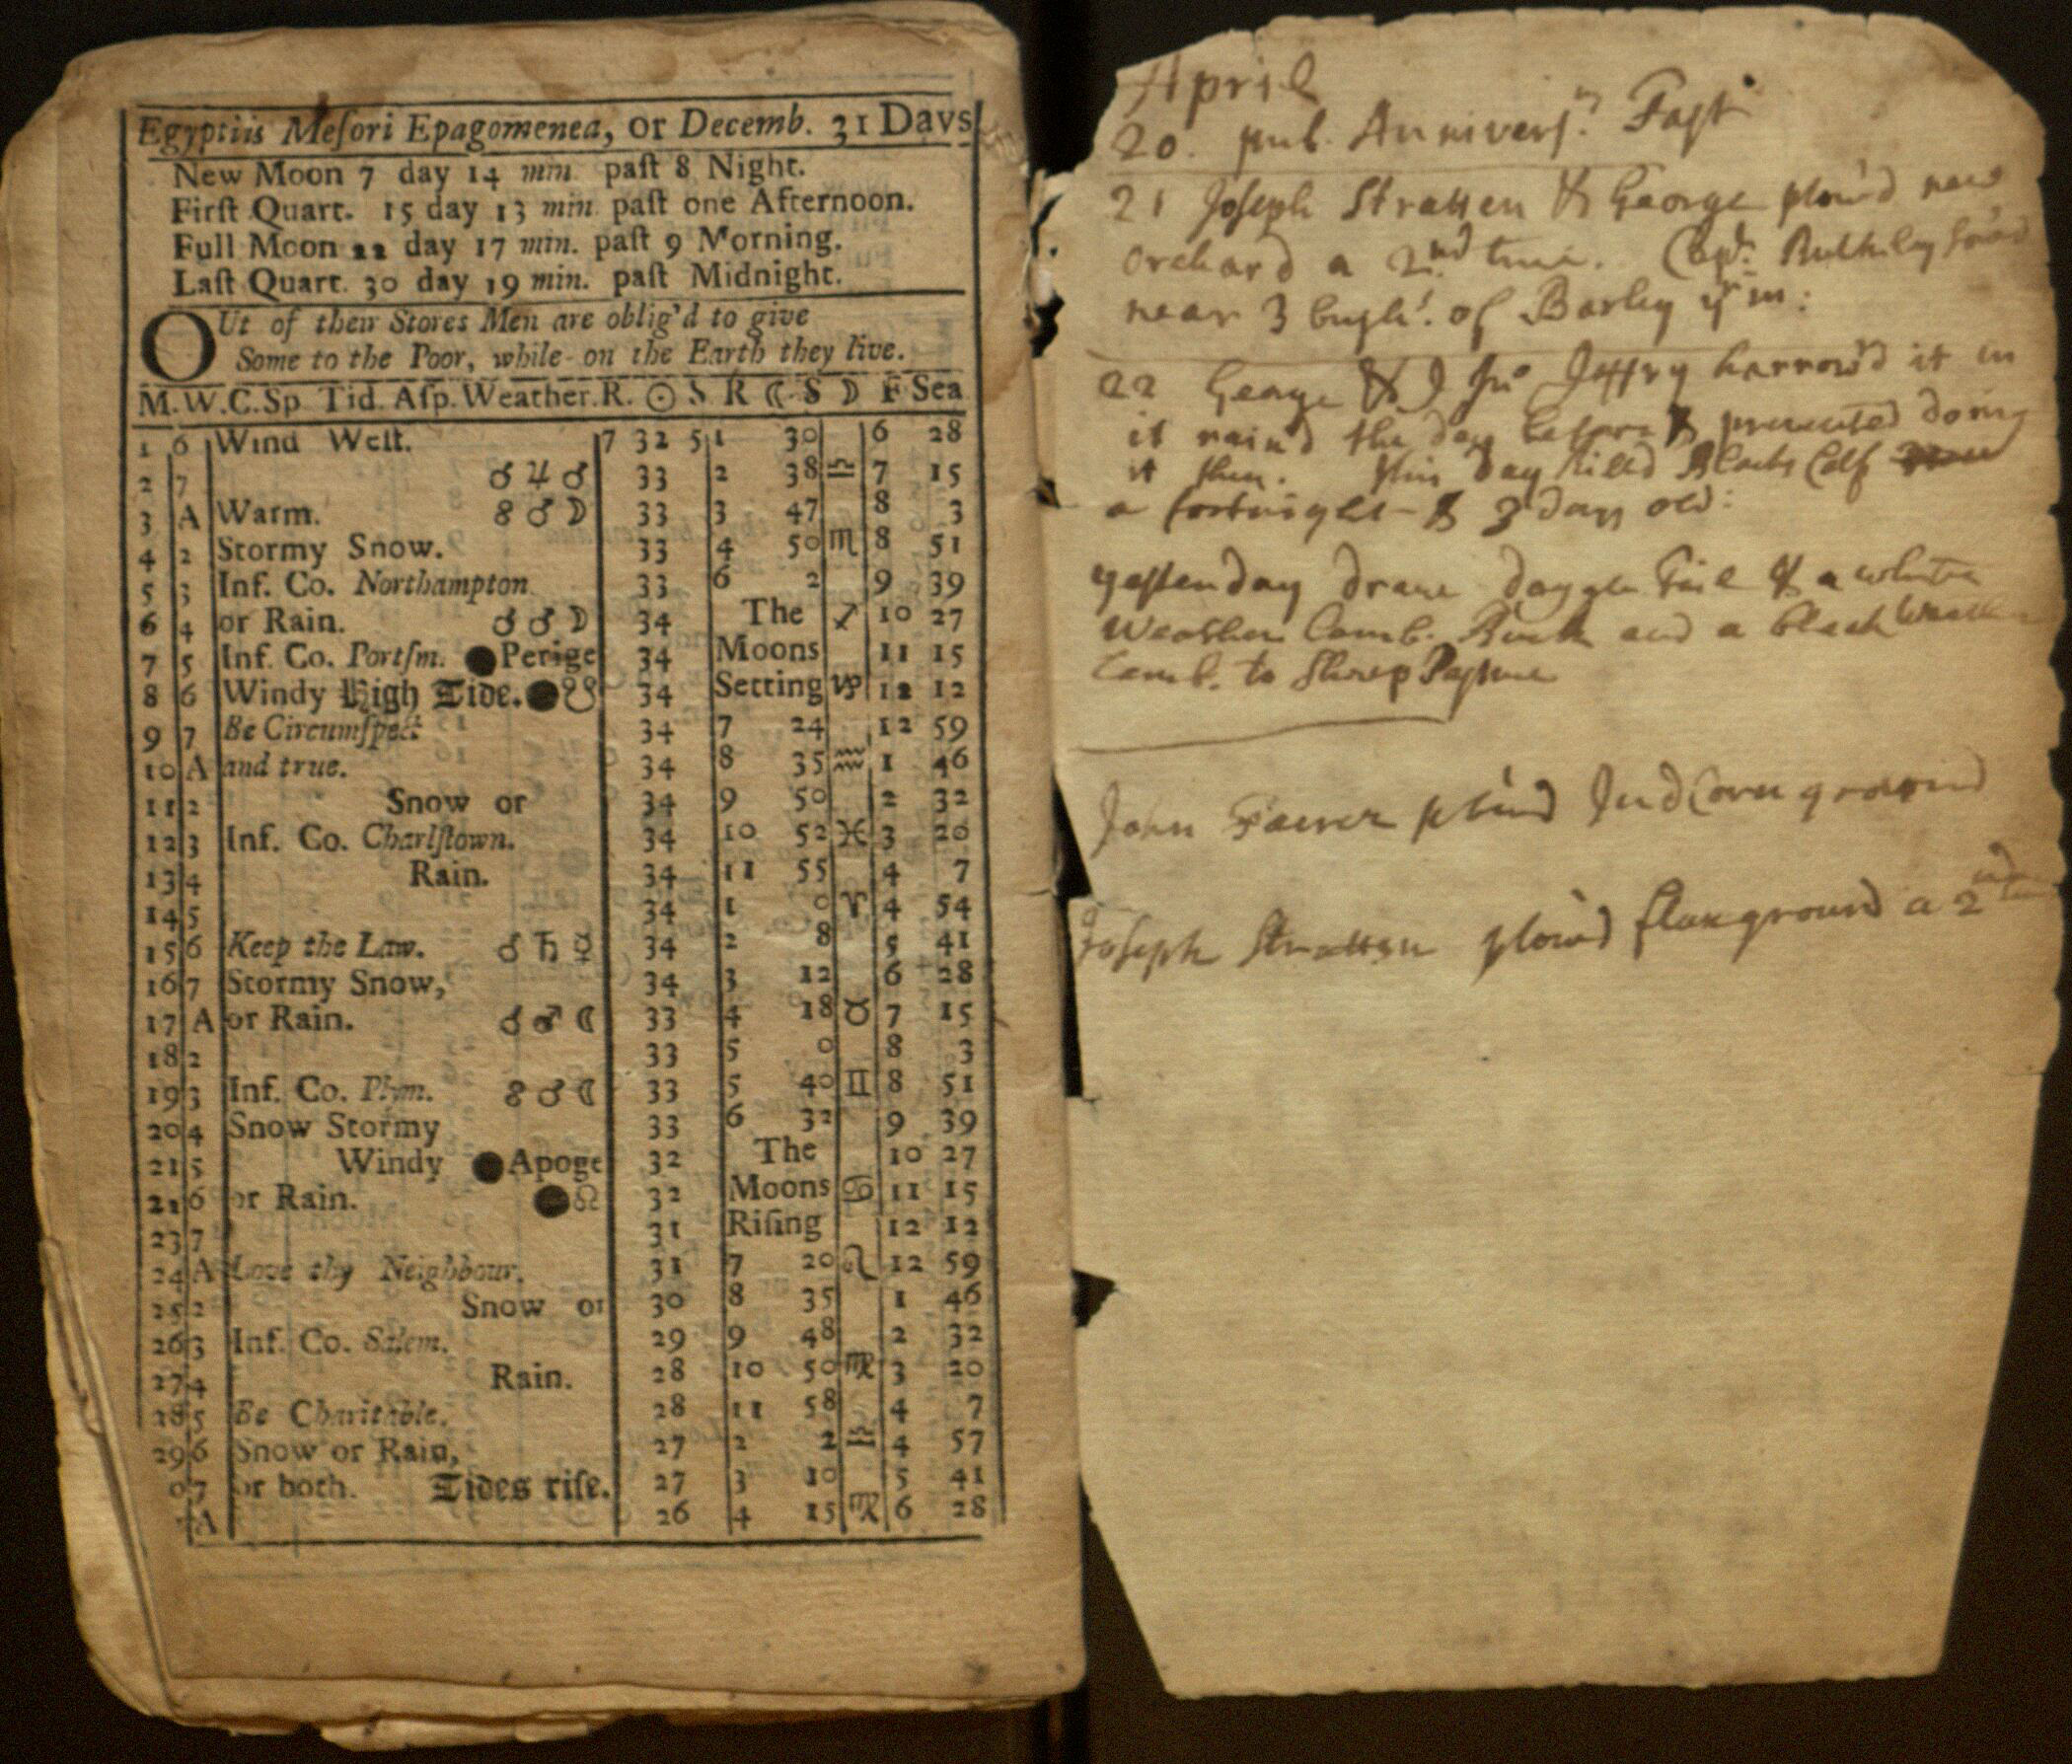 Egyptiis Mesori Epagomenea, or Decemb. 31 Days
New Moon 7 day 14 min past 8 Night.
First Quart. 15 day 13 min past one Afternoon.
Full Moon 22 day 17 min. past 9 Morning.
Last Quart. 30 day 19 min. past Midnight.
OUt of their Stores Men are oblig'd to give
Some to the Poor, while on the Earth they live.
M.W.C.Sp Tid. Asp. Weather. R. ☉ S R ☾ S ☽ F Sea
1 6 Wind Wett. 7 32 5 1 30 6 28
2 7 ☌ ♃ ♂ 33 2 38 ♎ 7 15
3 A Warm. ☍ ♂ ☽ 33 3 47 8 3
4 2 Stormy Snow. 33 4 50 ♏ 8 51
5 3 Inf. Co. Northampton 33 6 2 9 39
6 4 or Rain. ☌ ♂ ☽ 34 The ♐ 10 27
7 5 Inf. Co. Portsm. ●Perige 34 Moons 11 15
8 6 Windy High Tide. ●☋ 34 Setting ♑ 12 12
9 7 Be Circumspect 34 7 24 12 59
10 A and true. 34 8 35 ♒ 1 46
11 2 Snow or 34 9 50 2 32
12 3 Inf. Co. Charlstown. 34 10 52 ♓ 3 20
13 4 Rain. 34 11 55 4 7
14 5 34 1 0 ♈ 4 54
15 6 Keep the Law. ☌ ♄ ☿ 34 2 8 5 41
16 7 Stormy Snow, 34 3 12 6 28
17 A or Rain. ☌ ♂ ☾ 33 4 18 ♉ 7 15
18 2 33 5 0 8 3
19 3 Inf. Co. Plym. ☍ ♂ ☾ 33 5 40 ♊ 8 51
20 4 Snow Stormy 33 6 32 9 39
21 5 Windy ●Apoge 32 The 10 27
22 6 or Rain. ●☊ 32 Moons ♋ 11 15
23 7 31 Rising 12 12
24 A Love thy Neighbour. 31 7 20 ♌ 12 59
25 2 Snow or 30 8 35 1 46
26 3 Inf. Co. Salem. 29 9 48 2 32
27 4 Rain. 28 10 50 ♍ 3 20
28 5 Be Charitable. 28 11 58 4 7
29 6 Snow or Rain, 27 2 2 ♎ 4 57
0 7 or both. Tides rise. 27 3 10 5 41
A 26 4 15 ♏ 6 28
April
20. pub. Annivers.ry Fast
21 Joseph Stratten & George plow'd new
orchard a 2nd time. Capt. Bulkley sow'd
near 3 bush!. of Barley yr in:
22 George & Jno Jeffry harrow'd it in
it rain'd the day before & prevented doing
it then. this day kill'd Blacks Calf
a fortnight & 3 days old:
yesterday drave Daggle tail & a white
Weather Lamb. Buck and a black Weather
Lamb. to Sheep Pasture
John plow'd Ind Corn ground
Joseph Stratten plow'd flaxground a 2nd time